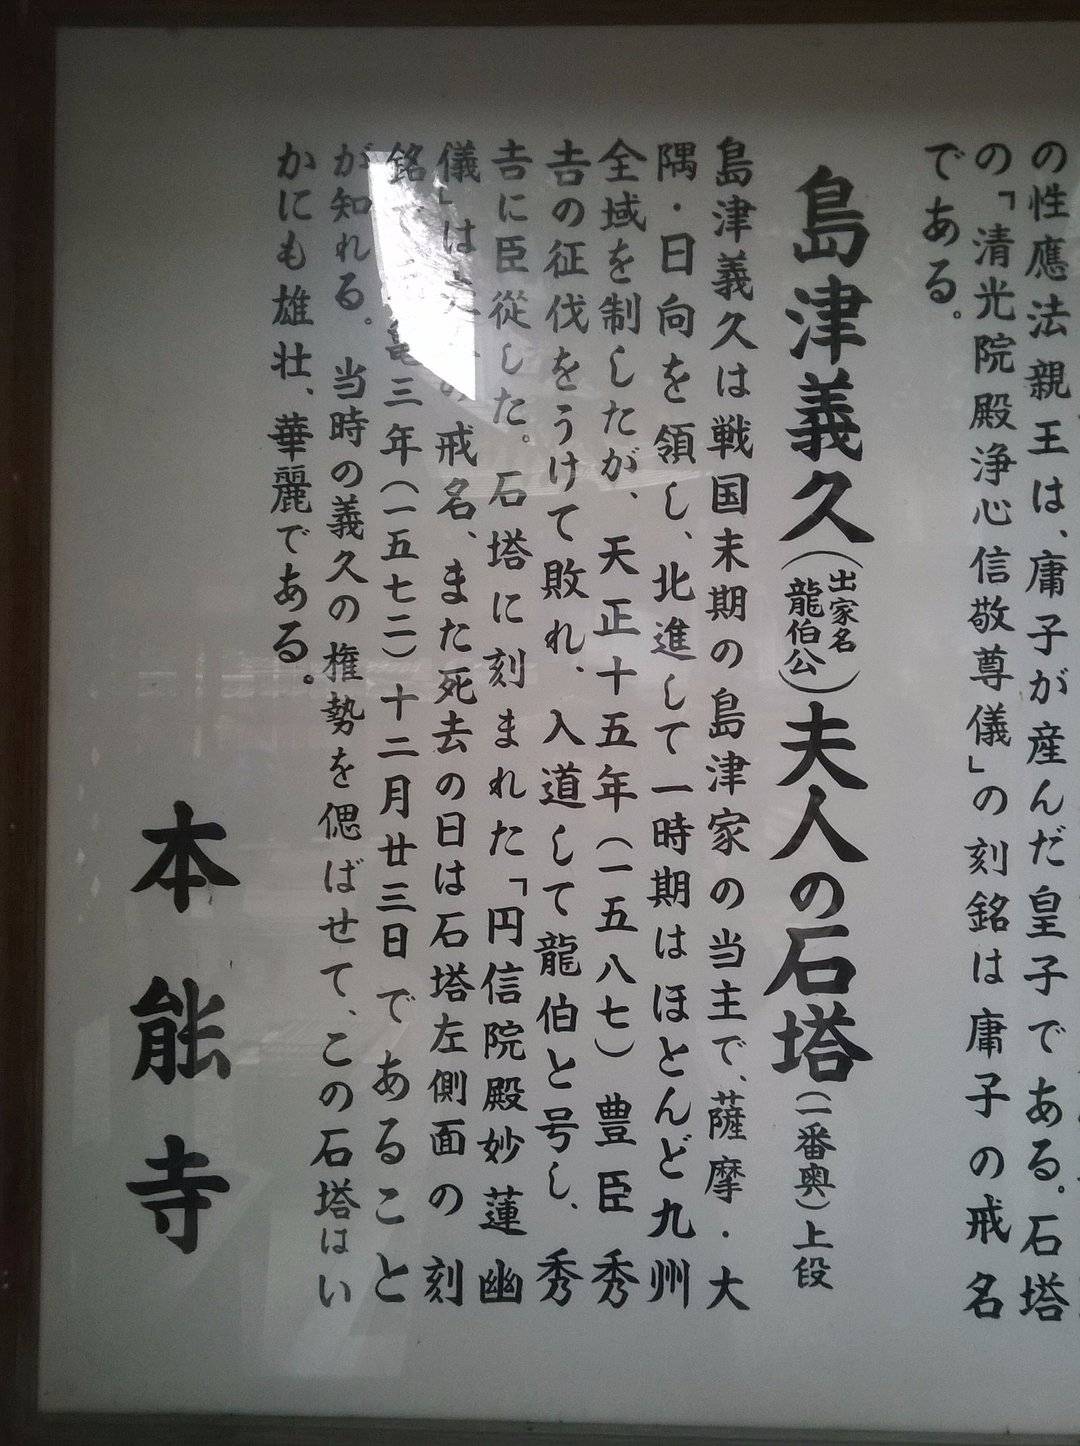 の性應法親王は、庸子が産んだ皇子である。石塔
の「清光院殿浄心信敬尊儀」の刻銘は庸子の戒名
である。
島津義久（出家名龍伯公）夫人の石塔（一番奥）上段
島津義久は戦国末期の島津家の当主で、薩摩・大
隅・日向を領し、北進して一時期はほとんど九州
全域を制したが、天正十五年（一五八七）豊臣秀
吉の征伐をうけて敗れ、入道して龍伯と号し、秀
吉に臣従した。石塔に刻まれた「円信院殿妙蓮幽
儀」は の戒名、また死去の日は石塔左側面の刻
銘で 亀三年（一五七二）十二月廿三日であること
が知れる。当時の義久の権勢を偲ばせて、この石塔はい
かにも雄壮、華麗である。
本能寺